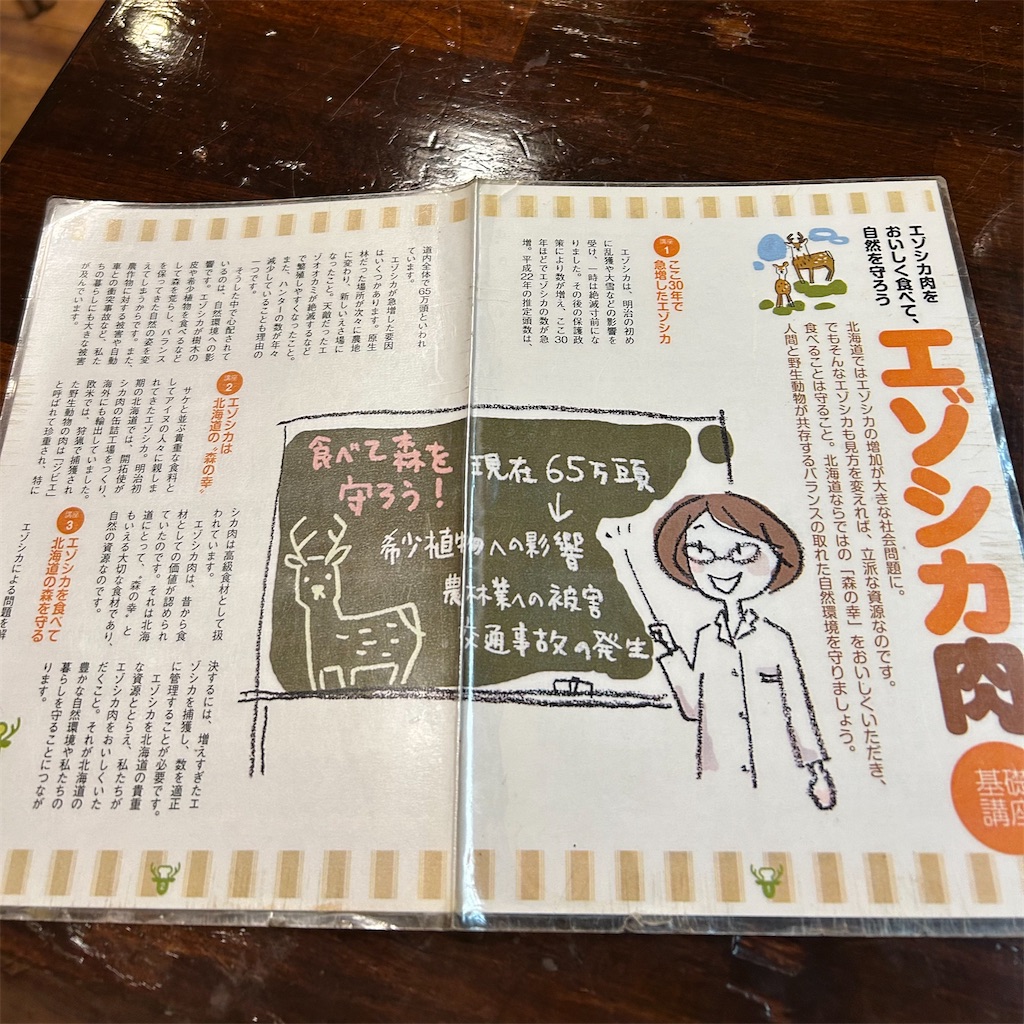 エゾシカ肉を
おいしく食べて、
自然を守ろう
エゾシカ肉
基礎
講座
北海道ではエゾシカの増加が大きな社会問題に。
でもそんなエゾシカも見方を変えれば、立派な資源なのです。
食べることは守ること。北海道ならではの「森の幸」をおいしくいただき、
人間と野生動物が共存するバランスの取れた自然環境を守りましょう。
講座
1
ここ30年で
急増したエゾシカ
エゾシカは、明治の初め
に乱獲や大雪などの影響を
受け、一時は絶滅寸前にな
りました。その後の保護政
策により数が増え、ここ30
年ほどでエゾシカの数が急
増。平成22年の推定頭数は、
道内全体で65万頭といわれ
ています。
エゾシカが急増した要因
はいくつかあります。原生
林だった場所が次々に農地
に変わり、新しいえさ場に
なったこと。天敵だったエ
ゾオオカミが絶滅するなど
で繁殖しやすくなったこと。
また、ハンターの数が年々
減少していることも理由の
一つです。
そうした中で心配されて
いるのは、自然環境への影
響です。エゾシカが樹木の
皮や希少植物を食べるなど
して森を荒らし、バランス
を保ってきた自然の姿を変
えてしまうからです。また、
農作物に対する被害や自動
車との衝突事故など、私た
ちの暮らしにも大きな被害
が及んでいます。
講座
2
エゾシカは
北海道の“森の幸”
サケと並ぶ貴重な食料と
してアイヌの人々に親しま
れてきたエゾシカ。明治初
期の北海道では、開拓使が
シカ肉の缶詰工場をつくり、
海外にも輸出していました。
欧米では、狩猟で捕獲され
た野生動物の肉は「ジビエ」
と呼ばれて珍重され、特に
シカ肉は高級食材として扱
われています。
エゾシカ肉は、昔から食
材としての価値が認められ
ていたのです。それは北海
道にとって、“森の幸”と
もいえる大切な食材であり、
自然の資源なのです。
講座
3
エゾシカを食べて
北海道の森を守る
エゾシカによる問題を解
決するには、増えすぎたエ
ゾシカを捕獲し、数を適正
に管理することが必要です。
エゾシカを北海道の貴重
な資源ととらえ、私たちが
エゾシカ肉をおいしくいた
だくこと。それが北海道の
豊かな自然環境や私たちの
暮らしを守ることにつなが
ります。
食べて森を
守ろう!
現在65万頭
↓
希少植物への影響
農林業への被害
交通事故の発生